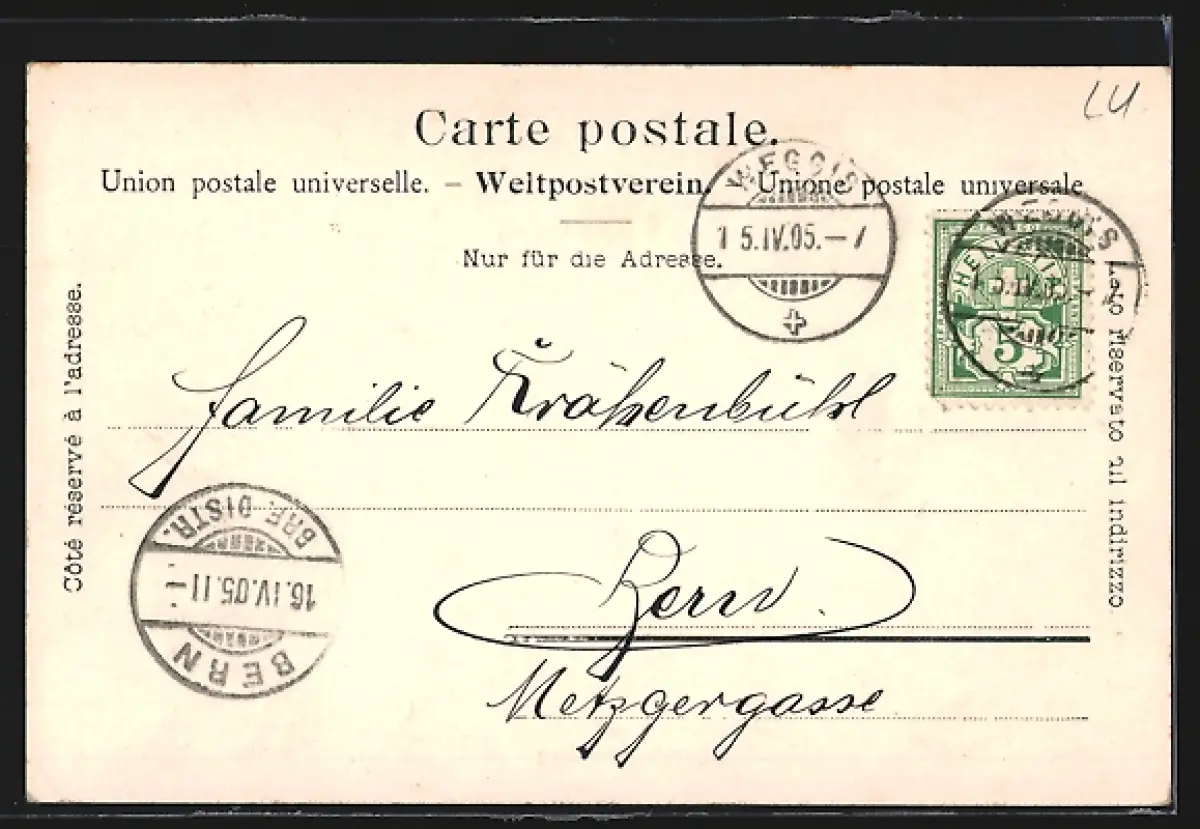 LU
Carte postale.
Union postale universelle. – Weltpostverein. Unione postale universale
WEGGIS
15.IV.05.–7
Nur für die Adresse.
HELVETIA
5
Côté réservé à l'adresse.
Lato riservato all indirizzo
Familie Krähenbühl
BRF. DISTR.
16.IV.05.11–
BERN
Bern.
Metzgergasse